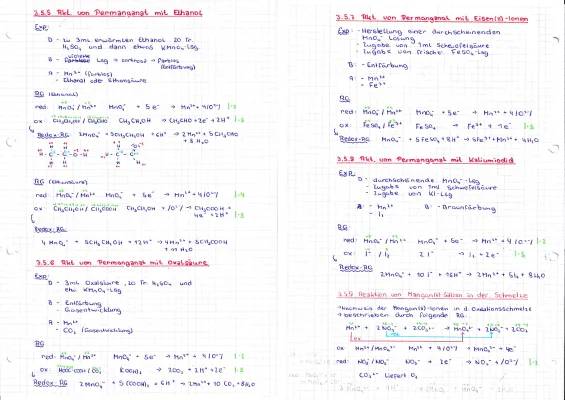 3.5.5 Rkt. von Permanganat mit Ethanol
Exp:
D - zu 3mL erwärmten Ethanol 20 Tr.
H₂SO₄ und dann etwas KMnO₄-Lsg
B - Lsg → farblos
Entfärbung
A - Mn²⁺ (farblos)
- Ethanal oder Ethansäure
RG (Ethanal)
red: MnO₄⁻/Mn²⁺ MnO₄⁻ + 5e⁻ → Mn²⁺ + 4/O²⁻/ |·2
ox: CH₃CH₂OH/CH₃CHO CH₃CH₂OH → CH₃CHO + 2e⁻ + 2H⁺ |·5
Redox-RG 2MnO₄⁻ + 5CH₃CH₂OH + 6H⁺ → 2Mn²⁺ + 5CH₃CHO
+ 8H₂O
RG (Ethansäure)
red: MnO₄⁻/Mn²⁺ MnO₄⁻ + 5e⁻ → Mn²⁺ + 4/O²⁻/ |·4
ox: CH₃CH₂OH/CH₃COOH CH₃CH₂OH + /O²⁻/ → CH₃COOH +
4e⁻ + 2H⁺ |·5
Redox-RG:
4MnO₄⁻ + 5CH₃CH₂OH + 12H⁺ → 4Mn²⁺ + 5CH₃COOH
+ 11H₂O
3.5.6 Rkt von Permanganat mit Oxalsäure
Exp:
D - 3mL Oxalsäure, 20 Tr H₂SO₄ und
etw. KMnO₄-Lsg
B - Entfärbung
- Gasentwicklung
A - Mn²⁺
- CO₂ (Gasentwicklung)
RG
red: MnO₄⁻/Mn²⁺ MnO₄⁻ + 5e⁻ → Mn²⁺ + 4/O²⁻/ |·2
ox: → 2CO₂ + 2H⁺ + 2e⁻ |·5
Redox-RG 2MnO₄⁻ + 5(COOH)₂ + 6H⁺ → 2Mn²⁺ + 10CO₂ + 8H₂O
3.5.7 Rkt. von Permanganat mit Eisen(II)-Ionen
Exp: - Herstellung einer durchscheinenden
MnO₄⁻ Lösung
- Zugabe von 1ml Schwefelsäure
- Zugabe von frische FeSO₄-Lsg
B: - Entfärbung
A: - Mn²⁺
- Fe³⁺
RG
red: MnO₄⁻/Mn²⁺ MnO₄⁻ + 5e⁻ → Mn²⁺ + 4/O²⁻/
ox: FeSO₄/Fe³⁺ FeSO₄ → Fe³⁺ + 1e⁻ |·5
Redox-RG MnO₄⁻ + 5FeSO₄ + 8H⁺ → 5Fe³⁺ + Mn²⁺ + 4H₂O
3.5.8 Rkt. von Permanganat mit Kaliumiodid
Exp.
D: - durchscheinende MnO₄⁻-Lsg
- Zugabe von 1ml Schwefelsäure
- Zugabe von KI-Lsg
A: - Mn²⁺ B: - Braunfärbung
- I₂
RG
red: MnO₄⁻/Mn²⁺ MnO₄⁻ + 5e⁻ → Mn²⁺ + 4/O²⁻/ |·2
ox: I⁻/I₂ 2I⁻ → I₂ + 2e⁻ |·5
Redox-RG
2MnO₄⁻ + 10I⁻ + 16H⁺ → 2Mn²⁺ + 5I₂ + 8H₂O
3.5.9 Reaktion von Mangan(II)-Salzen in der Schmelze
- Nachweis der Mangan(II)-Ionen in d Oxidationsschmelze
- beschrieben durch folgende RG:
Mn²⁺ + 2NO₃⁻ + 2CO₃²⁻ → MnO₄²⁻ + 2NO₂⁻ + 2CO₂
ox
ox: Mn²⁺/MnO₄²⁻ Mn²⁺ + 4/O²⁻/ → MnO₄²⁻ + 4e⁻
red: NO₃⁻/NO₂⁻ NO₃⁻ + 2e⁻ → NO₂⁻ + /O²⁻/ |·2
CO₃²⁻ liefert O₂